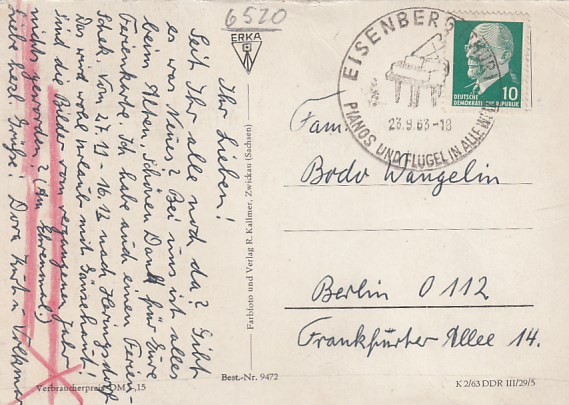 Ihr Lieben!
Seit Ihr alle noch da? Gibt
es was Neues? Bei uns ist alles
beim Alten. Schönen Dank für Eure
Ferienkarte. Ich habe auch einen Ferien-
scheck vom 27.11 - 16.12 nach Heringsdorf
Das wird wohl Urlaub mit Gänsehaut!
sind die Bilder vom vergangenen Jahr
nichts geworden? (Am
Liebe herzl. Grüße! Dora Kurt u. Volkmar
6520
ERKA
Farbfoto und Verlag R. Kallmer, Zwickau (Sachsen)
EISENBERG THÜR
23.9.63-18
PIANOS UND FLÜGEL IN ALLE
10
DEUTSCHE
DEMOKRATISCHE REPUBLIK
Fam.
Bodo Wangelin
Berlin O 112
Frankfurter Allee 14.
Verbraucherpreis DM -,15
Best.-Nr. 9472
K 2/63 DDR III/29/5